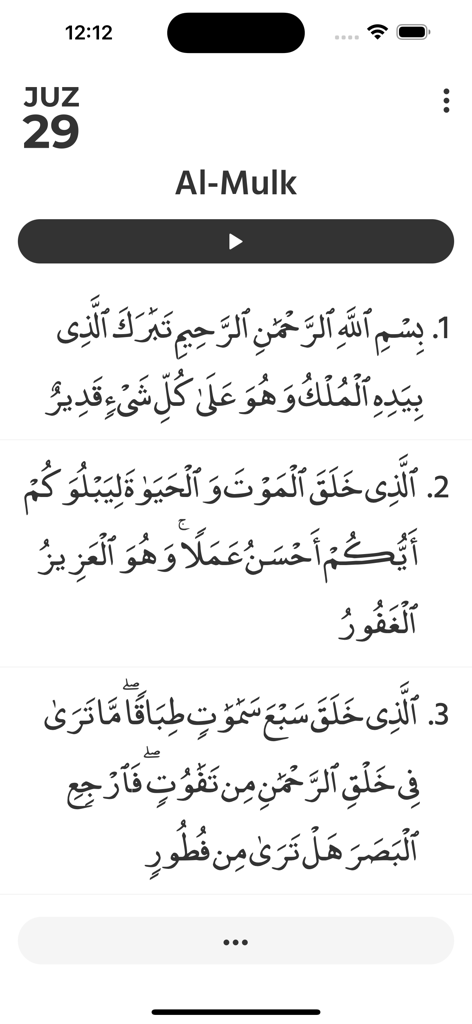 12:12
JUZ
29
Al-Mulk
1. بِسْمِ ٱللَّهِ ٱلرَّحْمَٰنِ ٱلرَّحِيمِ تَبَٰرَكَ ٱلَّذِى
بِيَدِهِ ٱلْمُلْكُ وَهُوَ عَلَىٰ كُلِّ شَىْءٍ قَدِيرٌ
2. ٱلَّذِى خَلَقَ ٱلْمَوْتَ وَٱلْحَيَوٰةَ لِيَبْلُوَكُمْ
أَيُّكُمْ أَحْسَنُ عَمَلًا ۚ وَهُوَ ٱلْعَزِيزُ
ٱلْغَفُورُ
3. ٱلَّذِى خَلَقَ سَبْعَ سَمَٰوَٰتٍ طِبَاقًا ۖ مَّا تَرَىٰ
فِى خَلْقِ ٱلرَّحْمَٰنِ مِن تَفَٰوُتٍ ۖ فَٱرْجِعِ
ٱلْبَصَرَ هَلْ تَرَىٰ مِن فُطُورٍ